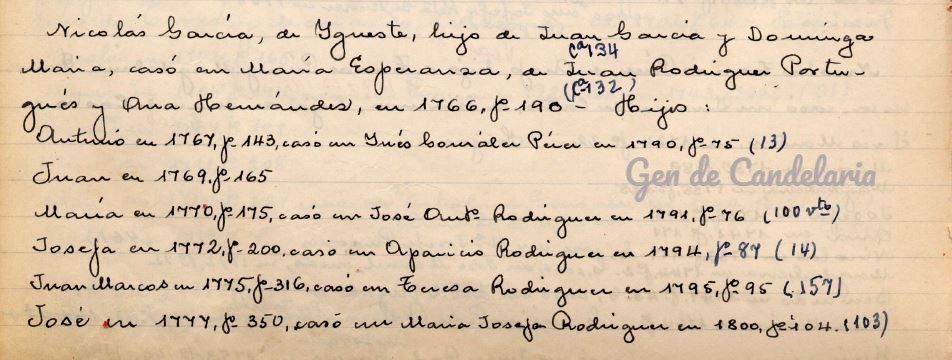 Nicolás García, de Ygueste, hijo de Juan García y Dominga
(ª134
Maria, casó con María Esperanza, de Juan Rodriguez Portu-
(ª132)
gués y Ana Hernández, en 1766, fº 190 - Hijos:
Antonio en 1767, fº 143, casó con Inés González Pérez en 1790, fº 75 (13)
Juan en 1769, fº 165
Gen de Candelaria
María en 1770, fº 175, casó con José Antº Rodriguez en 1791, fº 76 (100 vto)
Josefa en 1772, fº 200, casó con Aparicio Rodriguez en 1794, fº 87 (14)
Juan Marcos en 1775, fº 316, casó con Teresa Rodriguez en 1795, fº 95 (157)
José en 1777, fº 350, casó con Maria Josefa Rodriguez en 1800, fº 104. (103)